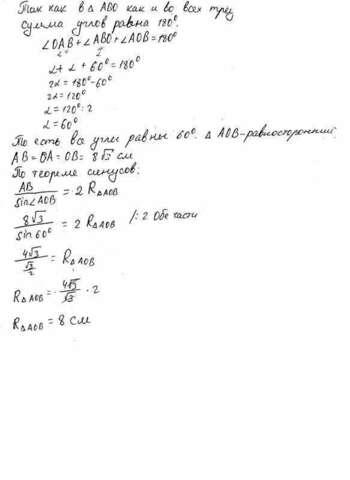 Так как в Δ ABO как и во всех треу
сумма углов равна 180°.
∠OAB + ∠ABO + ∠AOB = 180°
∠α ∠
α + α + 60° = 180°
2α = 180° - 60°
2α = 120°
α = 120° : 2
α = 60°
То есть все углы равны 60°. Δ AOB - равносторонний.
AB = OA = OB = 8√3 см
По теореме синусов:
AB / sin∠AOB = 2 R_ΔAOB
8√3 / sin 60° = 2 R_ΔAOB /: 2 Обе части
4√3 / (√3/2) = R_ΔAOB
R_ΔAOB = 4√3 / √3 · 2
R_ΔAOB = 8 см